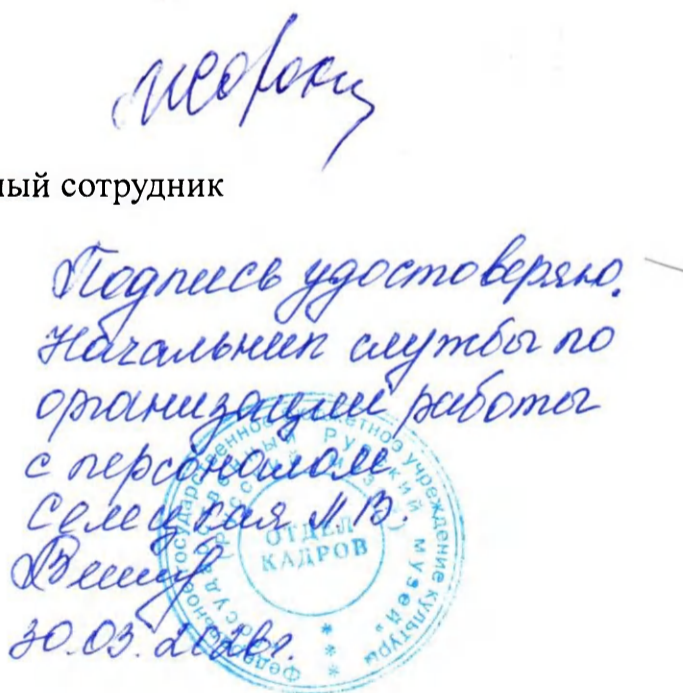 ный сотрудник
Подпись удостоверяю.
Начальник службы по
организации работы
с персоналом
Селецкая И.В.
30.03.2026г.
Федеральное государственное бюджетное учреждение культуры
Государственный Русский музей
ОТДЕЛ
КАДРОВ